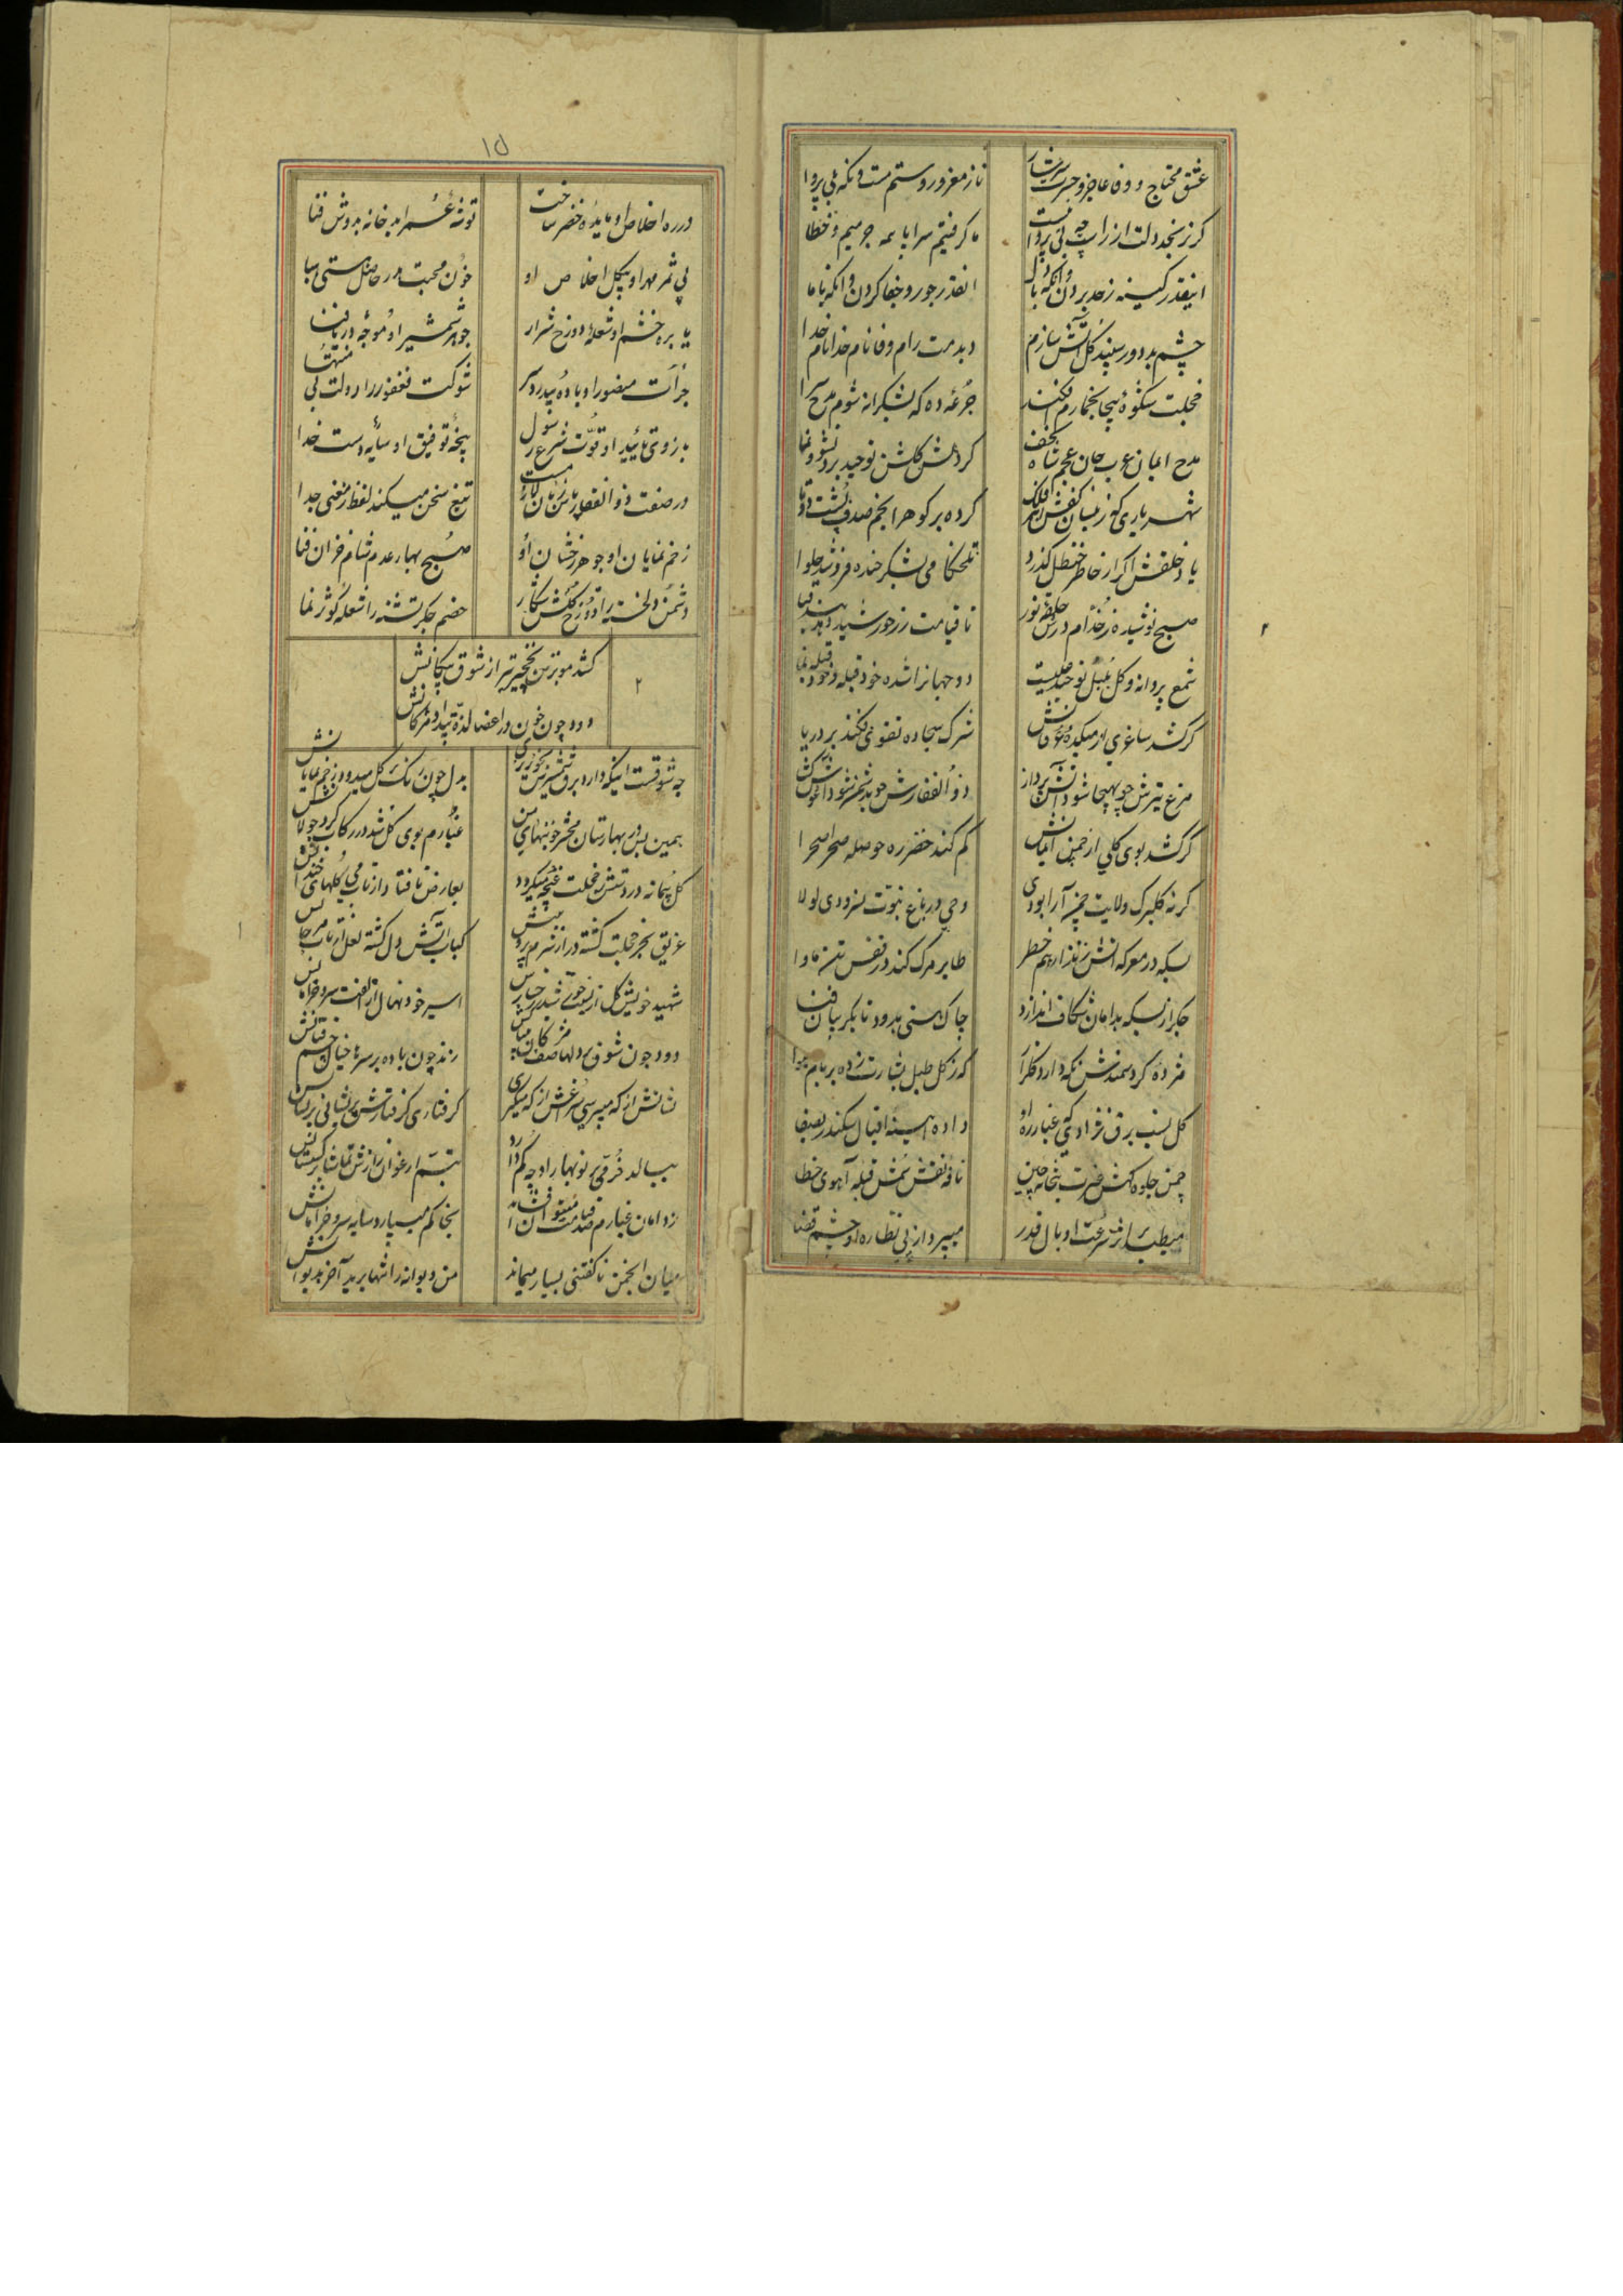 عشق محتاج و وفا عاجز و حسرت سرشار
ناز مغرور و ستم مست و نگه بی پروا
گر نرنجد دلت از راست چه بی پرواست
ما گرفتیم سراپا همه جرمیم و خطا
اینقدر کینه ز حد بردن وانگه با دل
انقدر جور و جفا کردن و انگه با ما
چشم بد دور سپند گل آتش سازم
دیدمت رام وفا نام خدا نام خدا
خجلت شکوهٔ بیجا بخمارم فکند
جرعهٔ ده که بشکرانه شوم مدح سرا
مدح ایمان عرب جان عجم شاه نجف
کردمش گلشن توحید برد نشو و نما
شهریاری که ز نیسان کفش افلاک
کرده بر گوهر انجم صدف پشت دوتا
یاد خلقش اگر از خاطر حنظل گذرد
تلخکامی بشکر خنده فروشد حلوا
صبح نوشیده ز خدام درش حلقهٔ نور
تا قیامت زر خورشید دهد
شمع پروانه و گل بلبل توحید
دو جهانرا شده خود قبله و خود قبله نما
گر کشد ساغری از میکدهٔ عرفانش
شرک سجاده تقوی فکند بر دریا
مرغ تیرش چو بهیجا شود آتش پرداز
ذوالفقارش چو بدشمن شود آغوش گشا
گر کشد بوی گلی از چمن
گم کند خضر ره حوصله صحرا صحرا
گر نه گلبرگ ولایت چمن آرا بودی
وحی در باغ نبوت نسرودی لولا
بسکه در معرکه آتش زند از بیم خطر
طایر مرگ کند در قفس تن ماوا
جگر از بسکه بدامان شکاف اندازد
چاک هستی بدرد تا بگریبان فنا
مژدهٔ گرد سمندش نگه دارد
که ز گل طبل بشارت زده بر بام هوا
گل نسب برق نژادی که غبار ره او
داده آیینه اقبال سکندر بصفا
چمن جلوه گهش غیرت بتخانه چین
نافه نقش سمش قبله آهوی خطا
میطپد از سرعت او بال قدر
میپرد از پی نظاره او چشم قضا
۱۵
در ره اخلاص او مایدهٔ خضر ساخت
توشهٔ عمر ابد خانه بدوش فنا
بی ثمر مهر او بیگل اخلاص او
خون محبت هدر حاصل هستی هبا
یا بره خشم او شعلهٔ دوزخ شرار
جوهر شمشیر او موجهٔ دریا فنا
جرأت منصور او باده
شوکت فغفور را دولت بی منتها
بازوی تأیید او قوت شرع رسول
پنجهٔ توفیق او سایهٔ دست خدا
در صفت ذوالفقار
تیغ سخن میکند لفظ ز معنی جدا
زخم نمایان او جوهر رخشان او
صبح بهار عدم شام خزان فنا
دشمن دلخسته را دوزخ
خصم جگر تشنه را شعله کوثر نما
۲
کشد مو بر تن نخچیر تیر از شوق پیکانش
دود چون خون در اعضا لذت بیداد مژگانش
چه شوقست اینکه دارد برق شمشیرش بخونریزی
بدل چون رنگ گل میدود زخم نمایانش
همین بس در بهارستان محشر خونبهای من
غبارم بوی گل شد در رکاب گرد جولانش
گل پیمانه در دستش ز خجلت غنچه میگردد
بعارض تا فتاد از تاب می گلهای خندانش
غریق بحر خجلت گشته در از شرم
کباب آتش دل گشته لعل از تاب مرجانش
شهید خویش گل از
اسیر خود نهال از الفت سرو خرامانش
دود چون شوق بر دلها صف مژگان
زند چون باده بر سرها خیال چشم فتانش
نشانش از که میپرسی سراغش از که میگیری
گرفتاری گرفتارش پریشانی پریشانش
ببالد خرمی بر نوبهار او چه کم دارد
تبسم ارغوان سازش تماشا گلستانش
ز دامان غبارم صد قیامت میتوان افشاند
بخاکم میسپارد سایه سرو خرامانش
میان انجمن ناگفتنی بسیار میماند
من دیوانه را تنها برید آخر بدیوانش
۲
۱